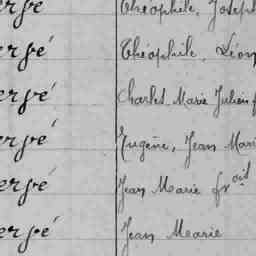 ervé Théophile, Joseph
ervé Théophile, Léon
ervé Charles Marie Julien f
ervé Eugène, Jean Mari
ervé Jean Marie frois
ervé Jean Marie